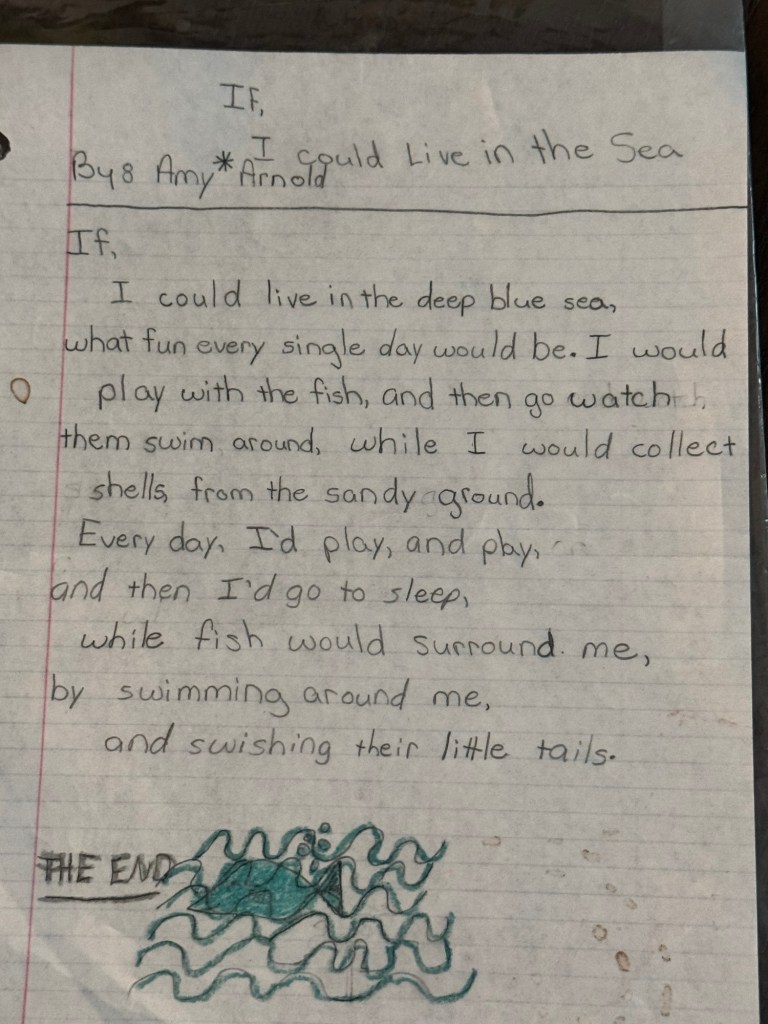 If,
I could Live in the Sea
By: Amy*Arnold
If,
I could live in the deep blue sea,
what fun every single day would be. I would
play with the fish, and then go watch
them swim around, while I would collect
shells, from the sandy ground.
Every day, I'd play, and play,
and then I'd go to sleep,
while fish would surround me,
by swimming around me,
and swishing their little tails.
THE END